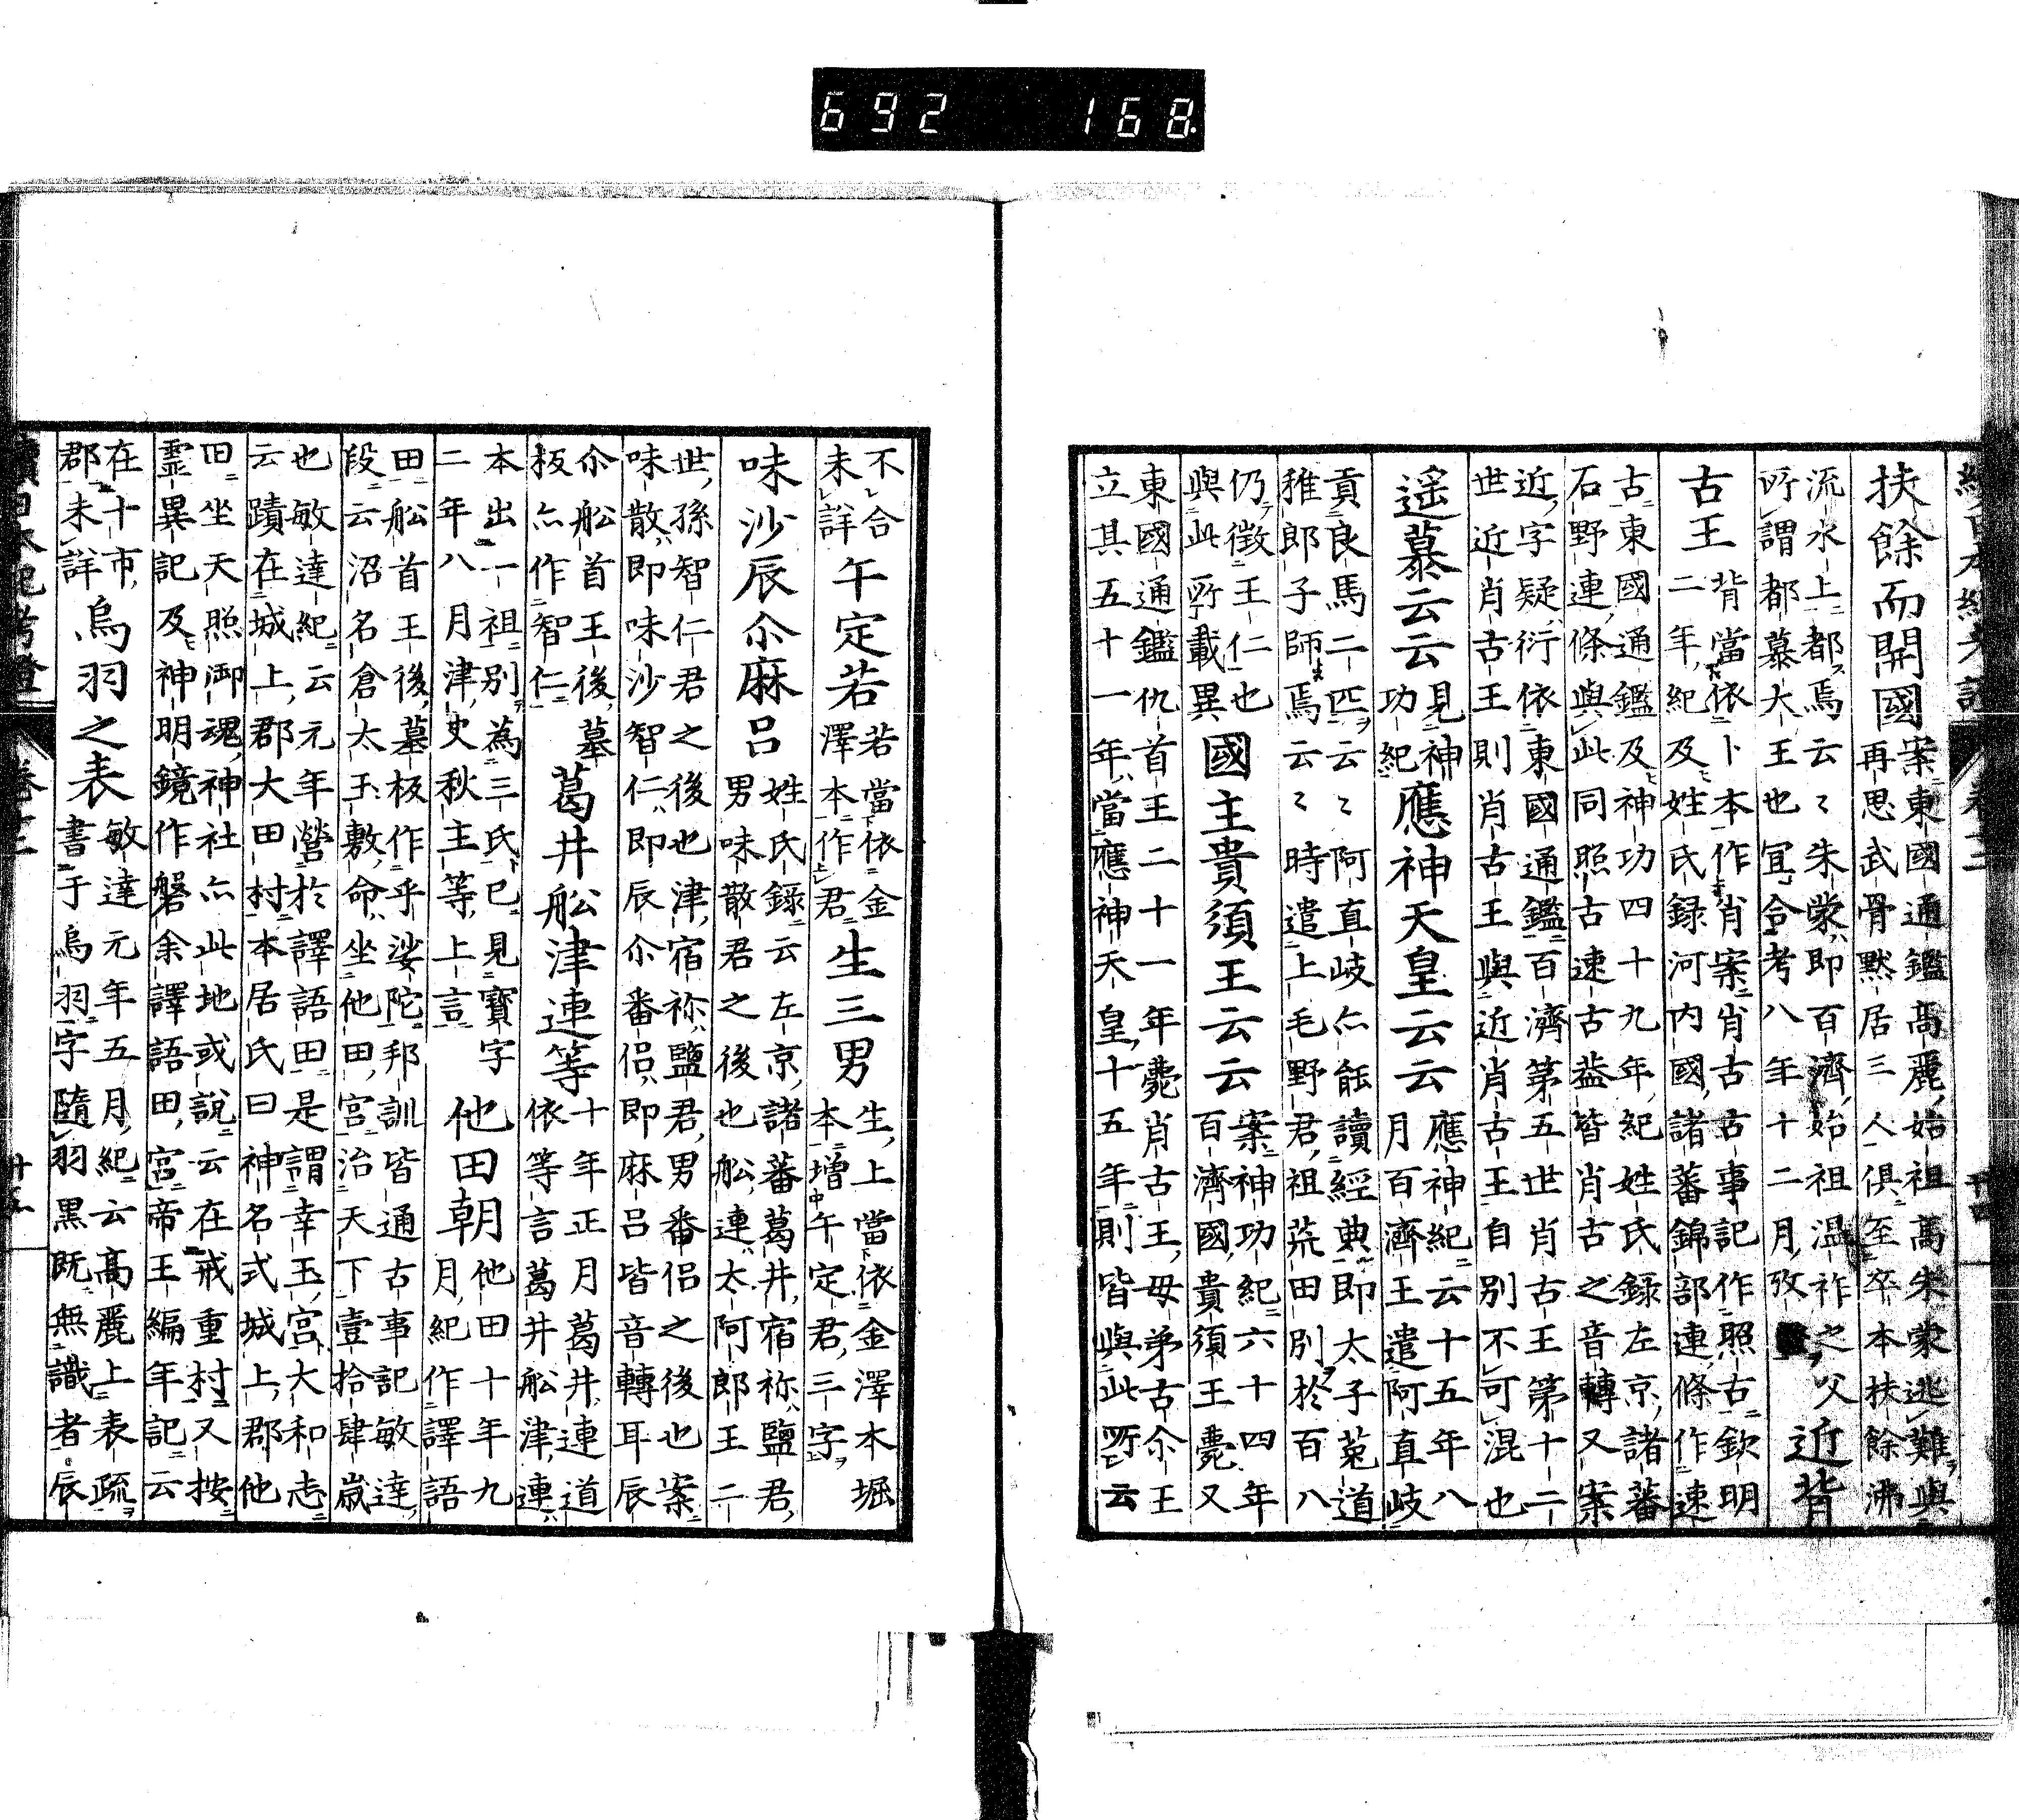 692 168
扶餘而開國案東國通鑑高麗始祖高朱蒙逃難與
再思武骨黙居三人俱至卒本扶餘沸
流水上都焉云〻朱蒙即百濟始祖温祚之父
所謂都慕大王也宜合考八年十二月攷
近背
古王背當依卜本作肖案肖古古事記作照古欽明
二年紀及姓氏録河内國諸蕃錦部連條作速
古東國通鑑及神功四十九年紀姓氏録左京諸蕃
石野連條與此同照古速古葢皆肖古之音轉又案
近字疑衍依東國通鑑百濟第五世肖古王第十二
世近肖古王則肖古王與近肖古王自別不可混也
遥慕云云見神功紀
應神天皇云云應神紀云十五年八
月百濟王遣阿直岐
貢良馬二匹云〻阿直岐亦能讀經典即太子菟道
稚郎子師焉云〻時遣上毛野君祖荒田別於百八
仍徴王仁也
與此所載異
國主貴須王云云案神功紀六十四年
百濟國貴須王薨又
東國通鑑仇首王二十一年薨肖古王毋弟古尒王
立其五十一年當應神天皇十五年則皆與此所云
不合
未詳
午定若若當依金
澤本作君
生三男生上當依金澤本堀
本増午定君三字
味沙辰尒麻呂姓氏録云左京諸蕃葛井宿祢鹽君
男味散君之後也船連太阿郎王二
世孫智仁君之後也津宿祢鹽君男番侶之後也案
味散即味沙智仁即辰尒番侶即麻呂皆音轉耳辰
尒船首王後墓
板亦作智仁
葛井船津連等十年正月葛井連道
依等言葛井船津連
本出一祖別為三氏已見寳字
二年八月津史秋主等上言
他田朝他田十年九
月紀作譯語
田船首王後墓板作乎娑陀邦訓皆通古事記敏達
段云沼名倉太玉敷命坐他田宮治天下壹拾肆歳
也敏達紀云元年營於譯語田是謂幸玉宮大和志
云蹟在城上郡大田村本居氏曰神名式城上郡他
田坐天照御魂神社亦此地或説云在戒重村又按
霊異記及神明鏡作磐余譯語田宮帝王編年記云
在十市
郡未詳
烏羽之表敏達元年五月紀云高麗上表疏
書于烏羽字隨羽黒既無識者辰